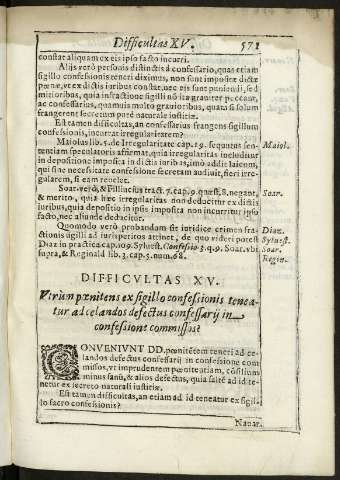 Difficultas XV. 571
constat aliquam ex eis ipso facto incurri.
Alijs verò personis distinctis à confessario, quas etiam
sigillo confessionis teneri diximus, non sunt impositæ dictæ
pœnæ, vt ex dictis iuribus constat, nec eis sunt puniendi, sed
mitioribus, quia infractione sigilli nō ita grauiter peccant,
ac confessarius, quamuis multo grauioribus, quàm si solum
frangerent secretum purè naturale iustitiæ.
Est tamen difficultas, an confessarius frangens sigillum
confessionis, incurrat irregularitatem?
Maiolus lib. 5. de Irregularitate cap. 19. sequutus sen- Maiol.
tentiam speculatoris affirmat, quia irregularitas includitur
in depositione imposita in dictis iuribus, imò addit laicum,
qui sine necessitate confessione secretam audiuit, fieri irre-
gularem, si eam reuelet.
Soar. verò, & Fillincius tract. 7. cap. 9. quæst. 8. negant, Soar.
& meritò, quia hæc irregularitas non deducitur ex dictis
iuribus, quia depositio in ipsis imposita non incurritur ipso
facto, nec aliunde deducitur.
Quomodo verò probandum sit iuridicè crimen fra-
ctionis sigilli ad iurisperitos attinet, de quo videri potest Diaz.
Diaz in practica cap. 109. Syluest. Confessio 3. q. 9. Soar. vbi Syluest.
supra, & Reginald lib. 3. cap. 5. num. 68. Soar.
Regin.
DIFFICVLTAS XV.
Vtrùm pœnitens ex sigillo confessionis tenea-
tur ad celandos defectus confessarij in
confessione commissos?
CONVENIVNT DD. pœnitētem teneri ad ce-
landos defectus confessarij in confessione com
missos, vt imprudentem pœnitentiam, cōsilium
minus sanū, & alios defectus, quia saltē ad id te-
netur ex secreto naturali iustitiæ.
Est tamen difficultas, an etiam ad id teneatur ex sigil-
lo sacro confessionis?
Nauar.